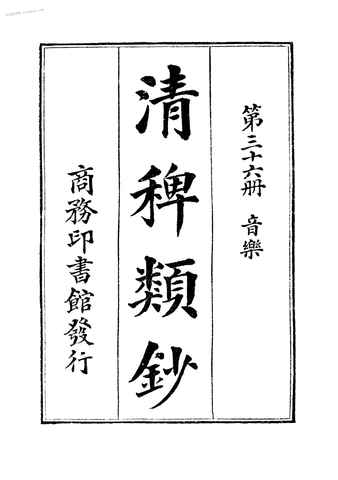 第三十六冊　音樂
清稗類鈔
商務印書館發行